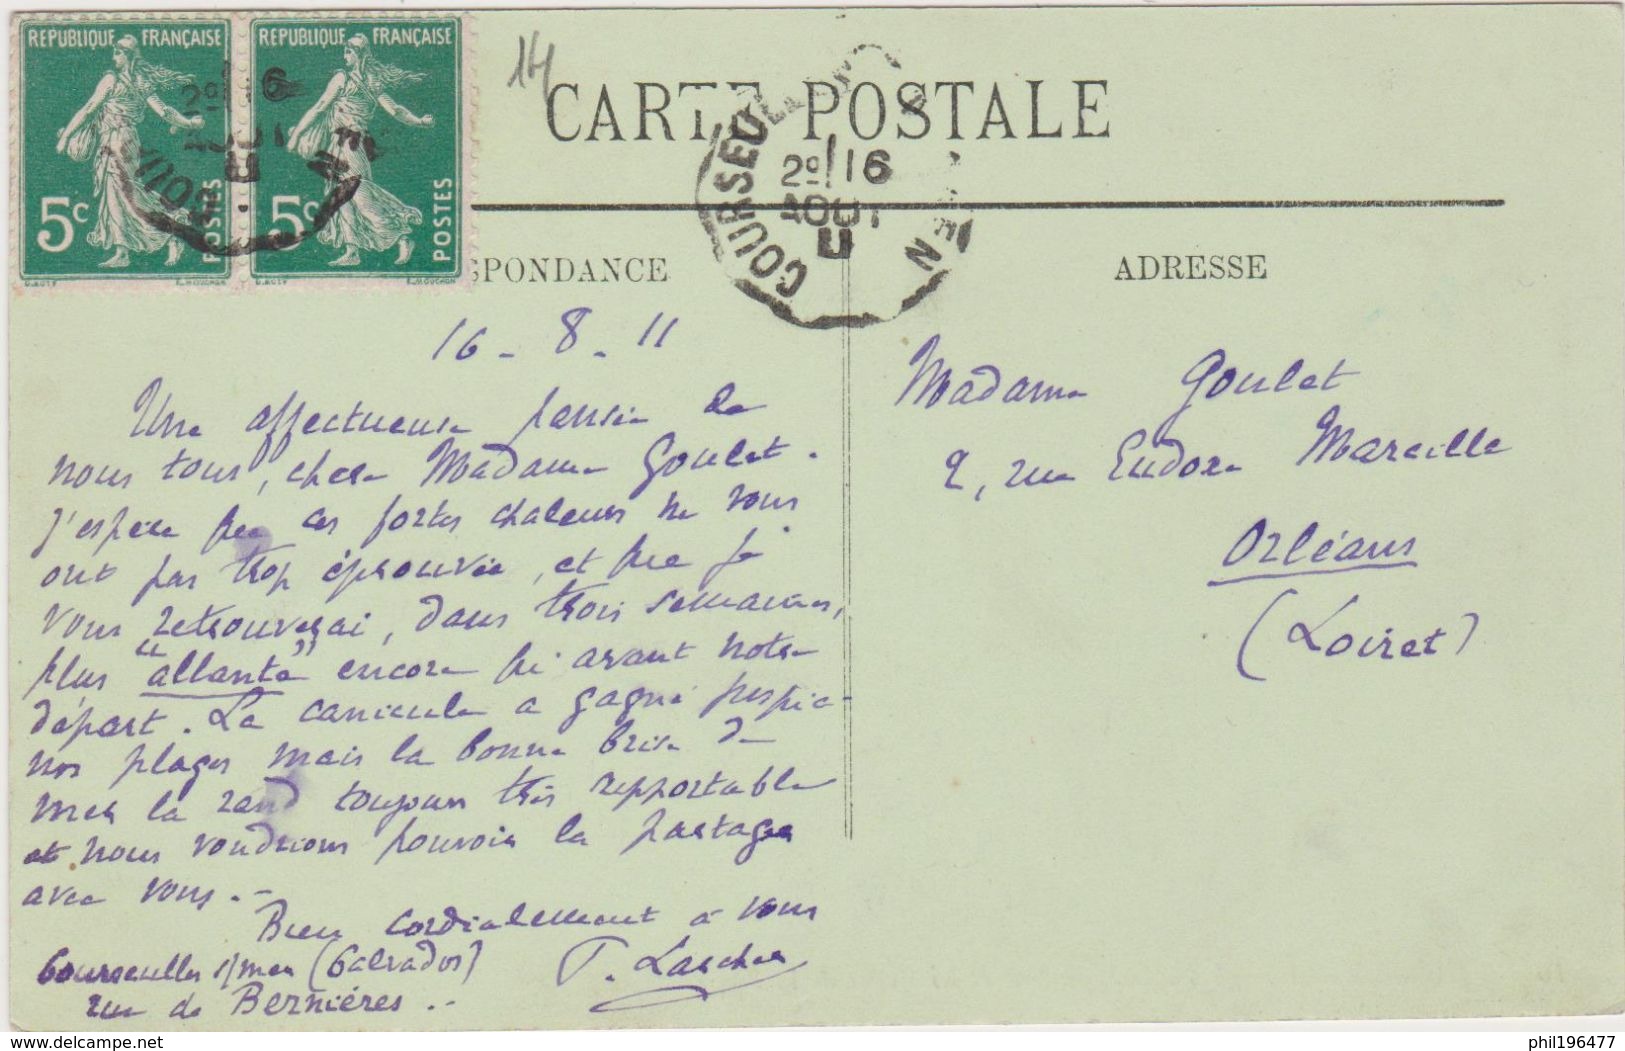 REPUBLIQUE FRANÇAISE REPUBLIQUE FRANÇAISE
5c POSTES 5c POSTES
14
CARTE POSTALE
COURSEU
2º/16
AOUT
11
SPONDANCE
ADRESSE
16 - 8 - 11
Une affectueuse pensée de
nous tous, chère Madame Goulet.
J'espère que ces fortes chaleurs ne vous
ont pas trop éprouvée, et que je
vous retrouverai, dans trois semaines,
plus "allante" encore qu'avant notre
départ. La canicule a gagné jusqu'à
nos plages mais la bonne brise de
mer la rend toujours très supportable
et nous voudrions pouvoir la partager
avec vous. -
Bien cordialement à vous
Courseulles s/mer (Calvados)
rue de Bernières. ..
Madame Goulet
2, rue Eudoxe Marcille
Orléans
(Loiret)
delcampe.net
phil196477